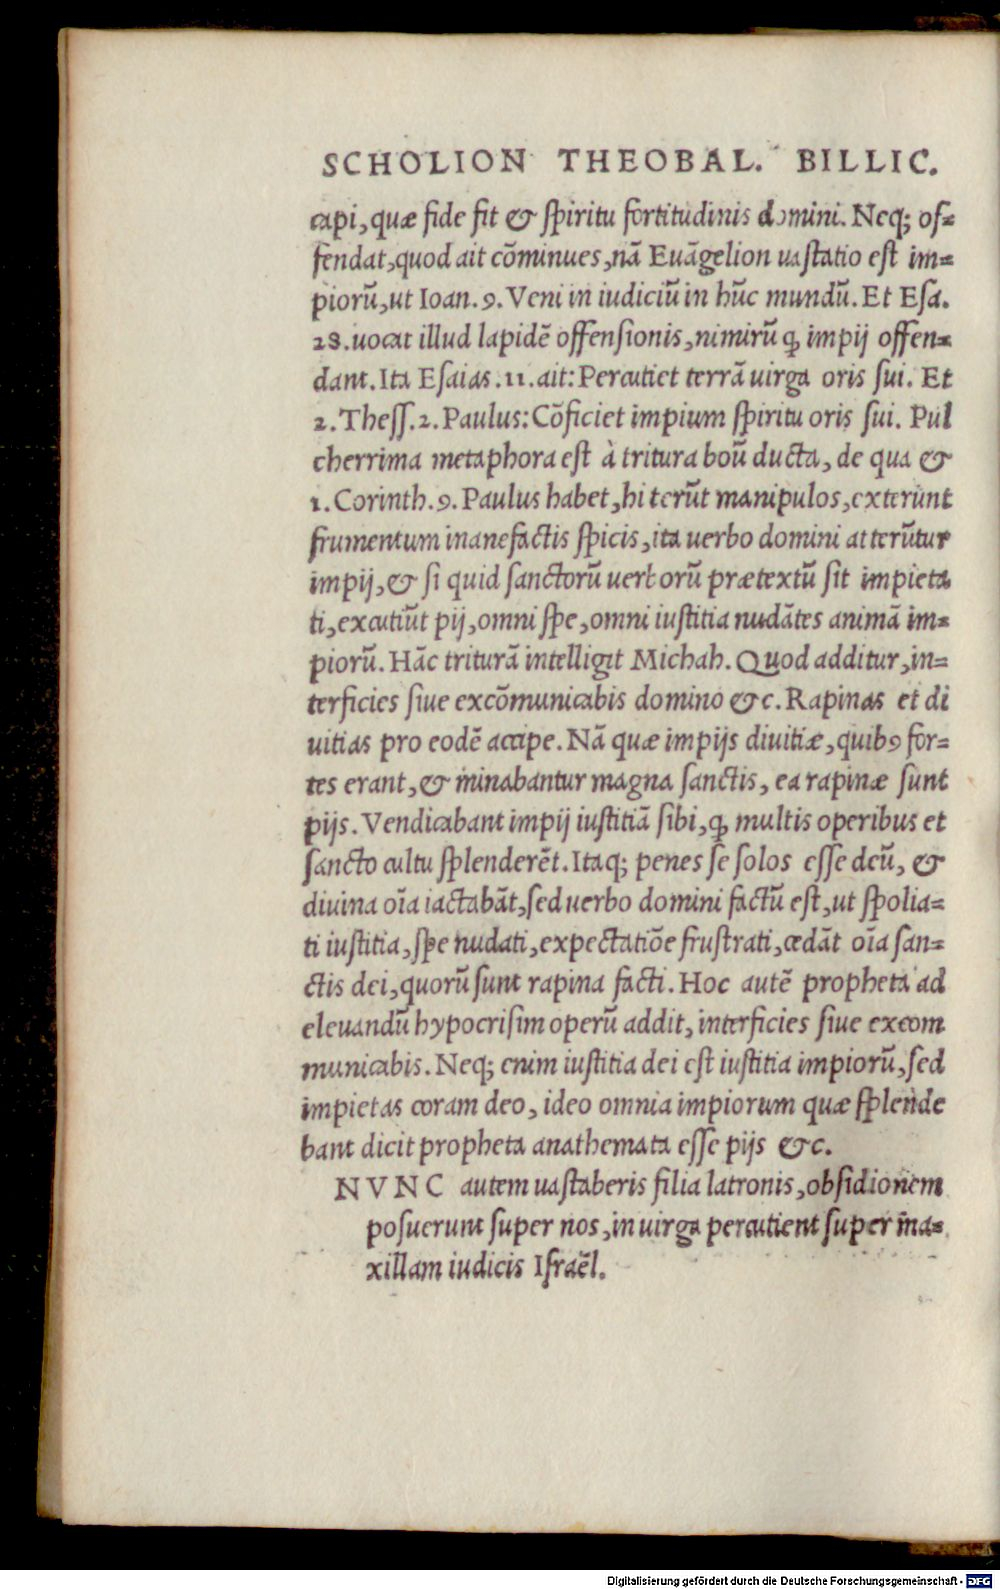 SCHOLION THEOBAL. BILLIC.
capi, quæ fide fit & spiritu fortitudinis domini. Neq; of-
fendat, quod ait cōminues, nā Euāgelion uastatio est im-
piorū, ut Ioan. 9. Veni in iudiciū in hūc mundū. Et Esa.
28. uocat illud lapidē offensionis, nimirū ꝙ impij offen-
dant. Ita Esaias. 11. ait: Percutiet terrā uirga oris sui. Et
2. Thess. 2. Paulus: Cōficiet impium spiritu oris sui. Pul
cherrima metaphora est à tritura boū ducta, de qua &
1. Corinth. 9. Paulus habet, hi terūt manipulos, exterunt
frumentum inanefactis spicis, ita uerbo domini atterūtur
impij, & si quid sanctorū uerborū prætextū sit impieta
ti, excutiūt pij, omni spe, omni iustitia nudātes animā im-
piorū. Hāc triturā intelligit Michah. Quod additur, in-
terficies siue excōmunicabis domino &c. Rapinas et di
uitias pro eodē accipe. Nā quæ impijs diuitiæ, quib9 for-
tes erant, & minabantur magna sanctis, ea rapinæ sunt
pijs. Vendicabant impij iustitiā sibi, ꝙ multis operibus et
sancto cultu splenderēt. Itaq; penes se solos esse deū, &
diuina oīa iactabāt, sed uerbo domini factū est, ut spolia-
ti iustitia, spe nudati, expectatiōe frustrati, cedāt oīa san-
ctis dei, quorū sunt rapina facti. Hoc autē propheta ad
eleuandū hypocrisim operū addit, interficies siue excom
municabis. Neq; enim iustitia dei est iustitia impiorū, sed
impietas coram deo, ideo omnia impiorum quæ splende
bant dicit propheta anathemata esse pijs &c.
NVNC autem uastaberis filia latronis, obsidionem
posuerunt super nos, in uirga percutient super ma-
xillam iudicis Israēl.
Digitalisierung gefördert durch die Deutsche Forschungsgemeinschaft - DFG